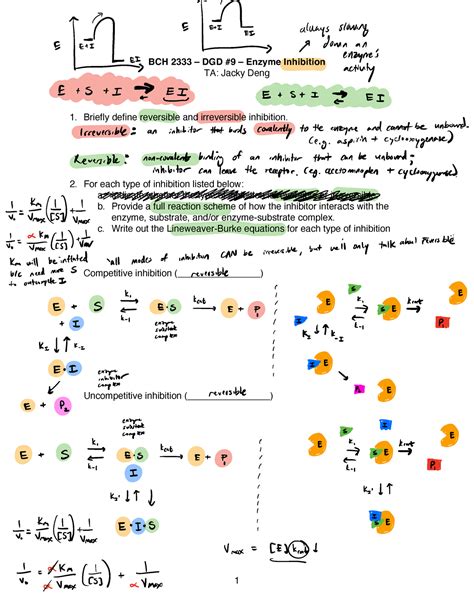 E
E+I
EI
E
E+I
EI
always slowing
down an
enzyme's
activity
BCH 2333 – DGD #9 – Enzyme Inhibition
TA: Jacky Deng
E + S + I ⇌ EI
E + S + I ⇌ EI
1. Briefly define reversible and irreversible inhibition.
Irreversible: an inhibitor that binds covalently to the enzyme and cannot be unbound.
(e.g. aspirin + cyclooxygenase)
Reversible: non-covalent binding of an inhibitor that can be unbound;
inhibitor can leave the receptor. (e.g. acetaminophen + cyclooxygenase)
2. For each type of inhibition listed below:
b. Provide a full reaction scheme of how the inhibitor interacts with the
enzyme, substrate, and/or enzyme-substrate complex.
c. Write out the Lineweaver-Burke equations for each type of inhibition
1/V₀ = Km/Vmax (1/[S]) + 1/Vmax
1/V₀ = α Km/Vmax (1/[S]) + 1/Vmax
Km will be inflated
b/c need more S
to outcompete I
*all modes of inhibition CAN be irreversible, but we'll only talk about reversible
Competitive inhibition ( reversible )
E + S ⇌ E·S → E + P₁
k₁
k-1
kcat
enzyme
substrate
complex
+ I
KI ↓↑ k-I
E·I
enzyme
inhibitor
complex
E + P₂
S
E
k₁
k-1
S E
kcat
E
P₁
I
KI ↓↑ k-I
I E
P₂
E
Uncompetitive inhibition ( reversible )
enzyme
substrate
complex
E + S ⇌ E·S → E + P₁
k₁
k-1
kcat
I
K₂' ↓↑
E·I·S
S
E
k₁
k-1
S E
kcat
E
P₁
I
K₂' ↓↑
I
S E
1/V₀ = Km/Vmax (1/[S]) + 1/Vmax
1/V₀ = αKm/αVmax (1/[S]) + α/Vmax
Vmax = [E] kcat ↓
1